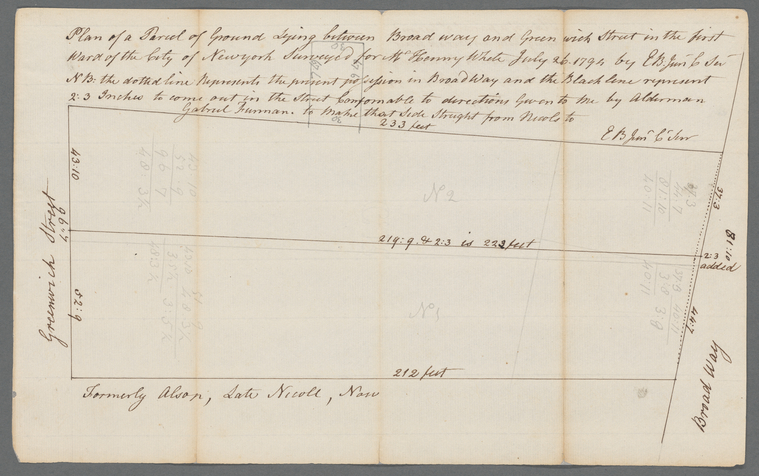 Plan of a Parcel of Ground Lying between Broad way and Green wich Street in the First
Ward of the City of Newyork Surveyed for Mr Henny White July 26. 1794 by E B Junr C Sur
N B: the dotted line Represents the present possession in Broad Way and the Black line represent
2:3 Inches to come out in the Street Conformable to directions Given to Me by Alderman
Gabriel Furman. to Make that Side Straight from Nicols to
E B Junr C Sur
233 feet
43:10
96:7
52:9
Greenwich Street
No 2
37:3
81:10
219:9 & 2:3 is 222 feet
2:3
added
No 1
44:7
212 feet
Broad Way
Formerly Alsop, Late Nicoll, Now